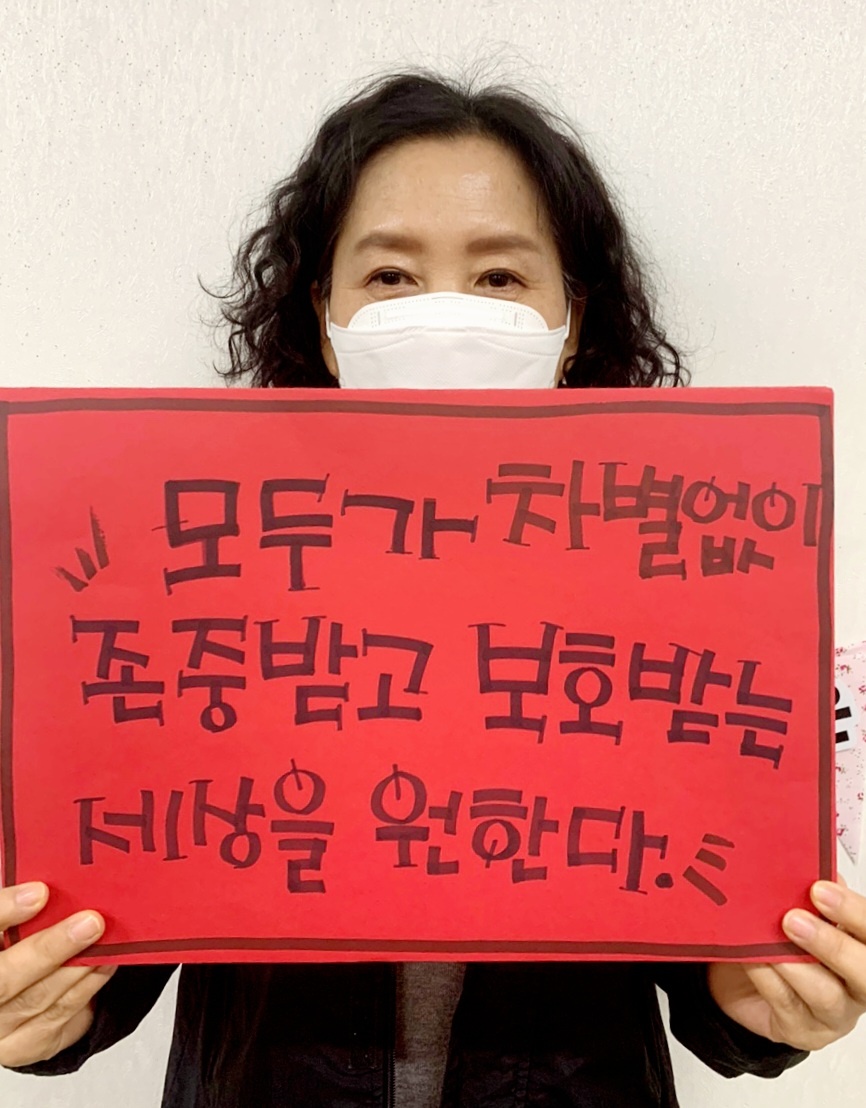 모두가 차별없이
존중받고 보호받는
세상을 원한다.